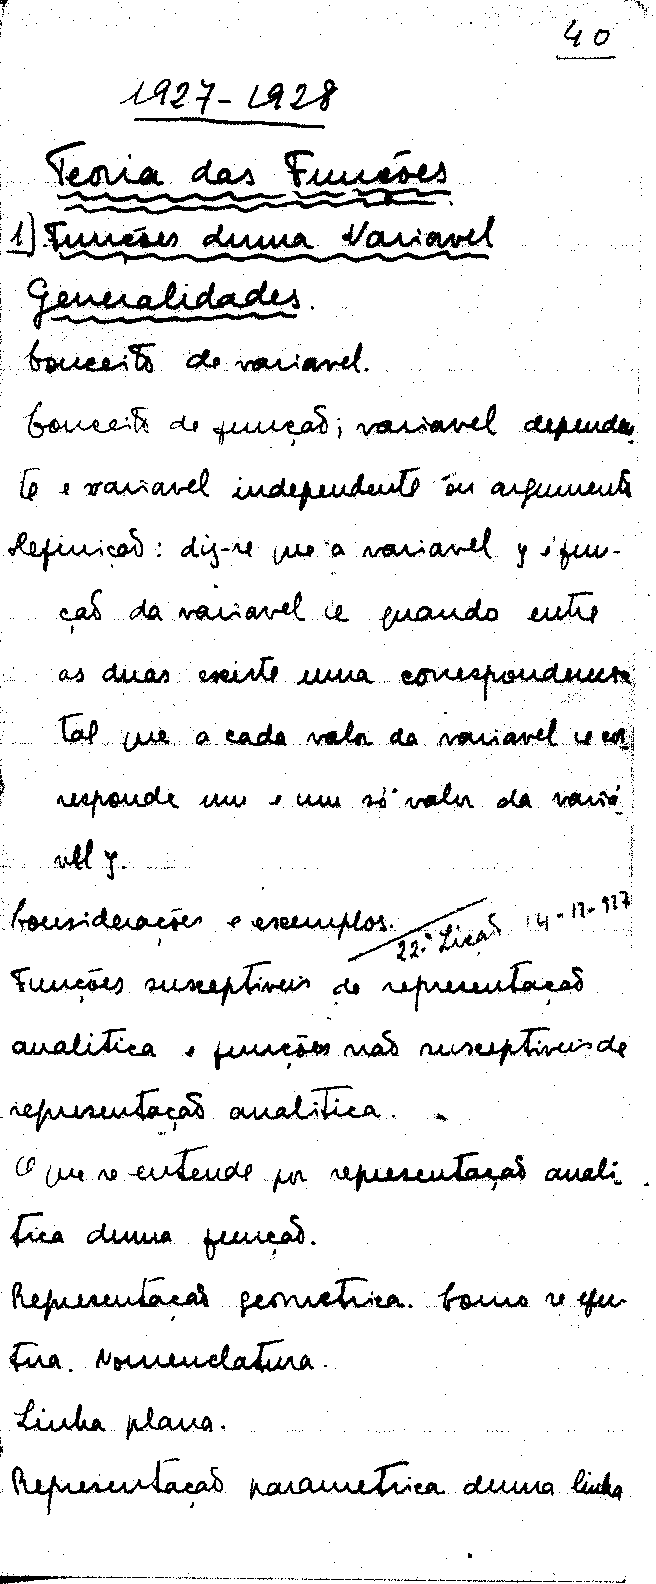 40
1927-1928
Teoria das Funções
1) Funções duma Variavel
Generalidades.
Conceito de variavel.
Conceito de função; variavel dependen
te e variavel independente ou argumento
Definição: diz-se que a variavel y é fun-
ção da variavel x quando entre
as duas existe uma correspondencia
tal que a cada valor da variavel x cor
responde um e um só valor da variá
vel y.
Considerações e exemplos.
22.ª Lição 14-12-927
Funções susceptiveis de representação
analitica e funções não susceptiveis de
representação analitica.
O que se entende por representação anali
tica duma função.
Representação geometrica. Como se efec
tua. Nomenclatura.
Linha plana.
Representação parametrica duma linha